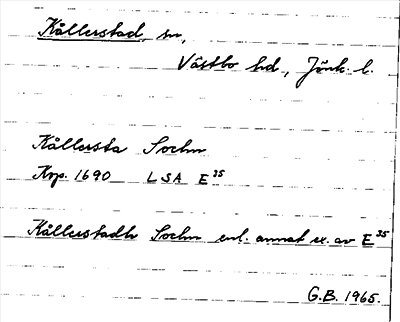 Kållerstad, sn,
Västbo hd, Jönk. l.
Kållersta Sochn
Krp. 1690 LSA E 35
Kållerstadh Sochn enl. annat ex. av E 35
G.B. 1965.